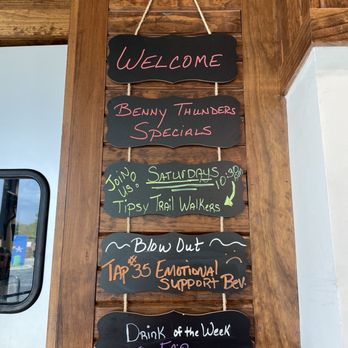 WELCOME
BENNY THUNDERS
SPECIALS
JOIN US! SATURDAYS 10:30
TIPSY TRAIL WALKERS
BLOW OUT
TAP #35 EMOTIONAL
SUPPORT BEV.
DRINK OF THE WEEK